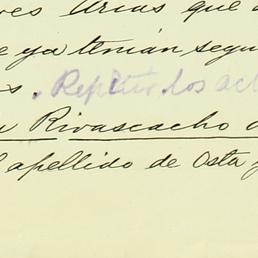 Arias que
ya tenían segu
s. Repetir los act
Rivascacho d
apellido de Osta y